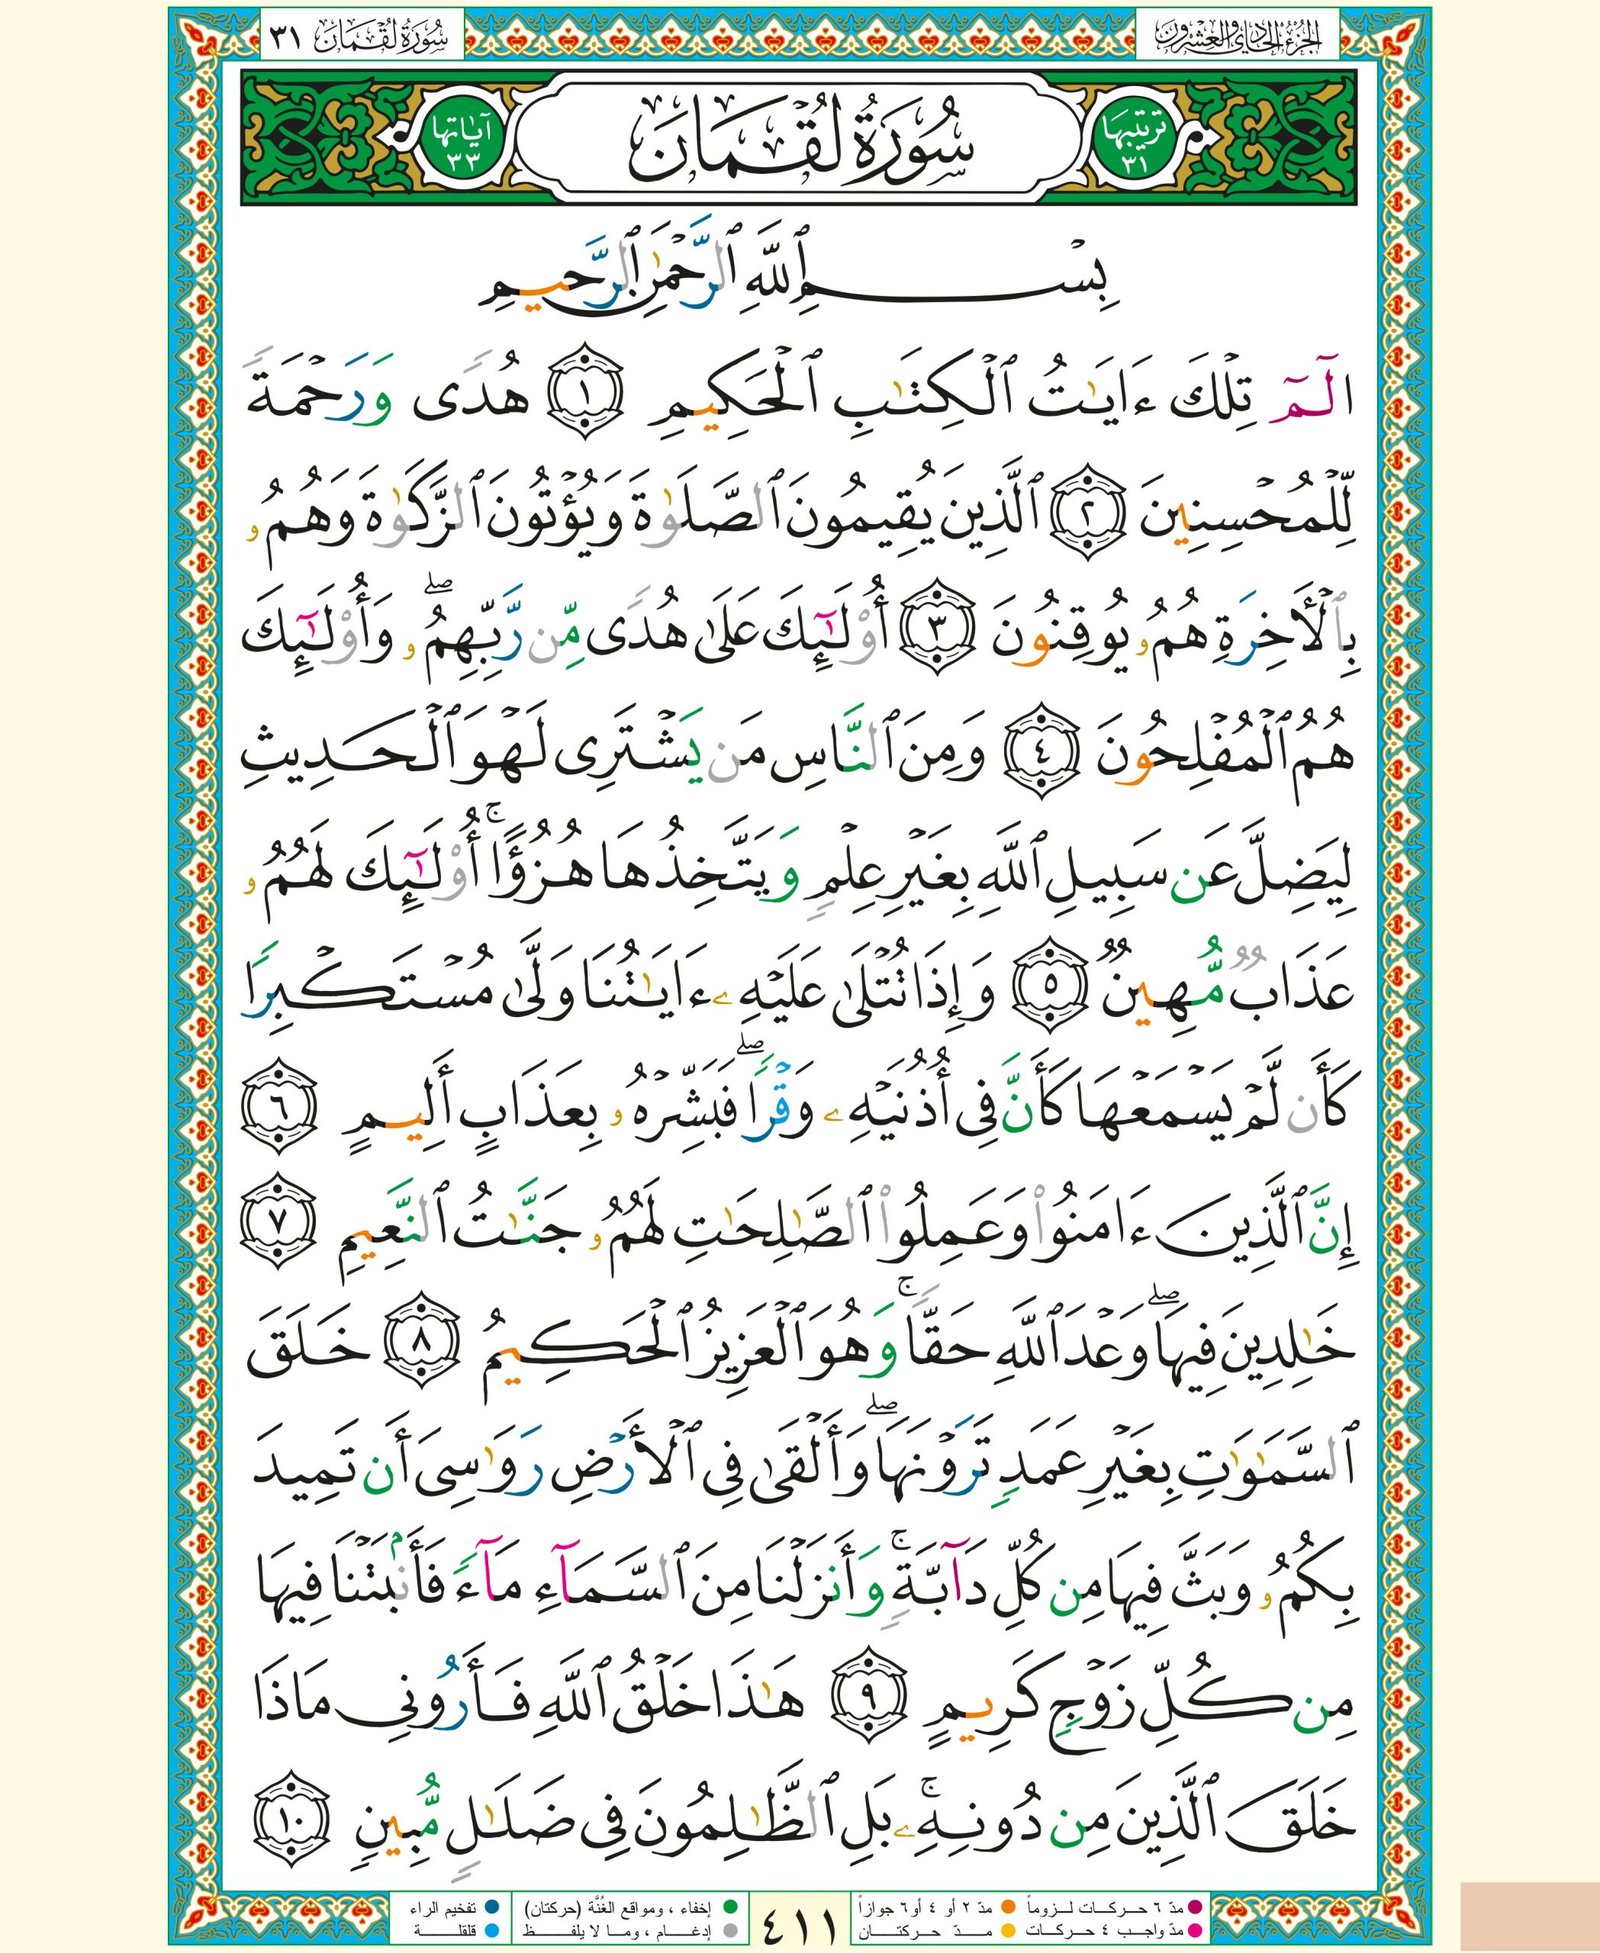 الجزء الحادي والعشرون
سُورَةُ لُقْمَان ٣١
ترتيبها ٣١
سُورَةُ لُقْمَان
آياتها ٣٣
بِسْمِ ٱللَّهِ ٱلرَّحْمَٰنِ ٱلرَّحِيمِ
الٓمٓ تِلْكَ ءَايَٰتُ ٱلْكِتَٰبِ ٱلْحَكِيمِ ١ هُدًى وَرَحْمَةً
لِّلْمُحْسِنِينَ ٢ ٱلَّذِينَ يُقِيمُونَ ٱلصَّلَوٰةَ وَيُؤْتُونَ ٱلزَّكَوٰةَ وَهُمُۥ
بِٱلْأَخِرَةِ هُمُۥ يُوقِنُونَ ٣ أُوْلَٰٓئِكَ عَلَىٰ هُدًى مِّن رَّبِّهِمُۥۖ وَأُوْلَٰٓئِكَ
هُمُ ٱلْمُفْلِحُونَ ٤ وَمِنَ ٱلنَّاسِ مَن يَشْتَرِى لَهْوَ ٱلْحَدِيثِ
لِيَضِلَّ عَن سَبِيلِ ٱللَّهِ بِغَيْرِ عِلْمٍ وَيَتَّخِذُهَا هُزُؤًاۚ أُوْلَٰٓئِكَ لَهُمُۥ
عَذَابٌ مُّهِينٌ ٥ وَإِذَا تُتْلَىٰ عَلَيْهِۦ ءَايَٰتُنَا وَلَّىٰ مُسْتَكْبِرًا
كَأَن لَّمْ يَسْمَعْهَا كَأَنَّ فِى أُذُنَيْهِۦ وَقْرًاۖ فَبَشِّرْهُۥ بِعَذَابٍ أَلِيمٍ ٦
إِنَّ ٱلَّذِينَ ءَامَنُوا۟ وَعَمِلُوا۟ ٱلصَّٰلِحَٰتِ لَهُمُۥ جَنَّٰتُ ٱلنَّعِيمِ ٧
خَٰلِدِينَ فِيهَاۖ وَعْدَ ٱللَّهِ حَقًّاۚ وَهُوَ ٱلْعَزِيزُ ٱلْحَكِيمُ ٨ خَلَقَ
ٱلسَّمَٰوَٰتِ بِغَيْرِ عَمَدٍ تَرَوْنَهَاۖ وَأَلْقَىٰ فِى ٱلْأَرْضِ رَوَٰسِىَ أَن تَمِيدَ
بِكُمُۥ وَبَثَّ فِيهَا مِن كُلِّ دَآبَّةٍۚ وَأَنزَلْنَا مِنَ ٱلسَّمَآءِ مَآءً فَأَنۢبَتْنَا فِيهَا
مِن كُلِّ زَوْجٍ كَرِيمٍ ٩ هَٰذَا خَلْقُ ٱللَّهِ فَأَرُونِى مَاذَا
خَلَقَ ٱلَّذِينَ مِن دُونِهِۦۚ بَلِ ٱلظَّٰلِمُونَ فِى ضَلَٰلٍ مُّبِينٍ ١٠
مدّ ٦ حركات لزوماً
مدّ ٢ أو ٤ أو ٦ جوازاً
مدّ واجب ٤ حركات
مدّ حركتان
٤١١
إخفاء ، ومواقع الغُنَّة (حركتان)
تفخيم الراء
إدغام ، وما لا يلفظ
قلقلة